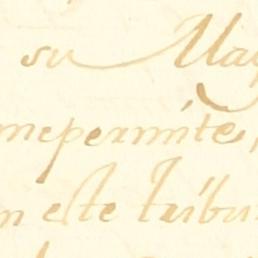 su Mag
mepermite,
n este tribu